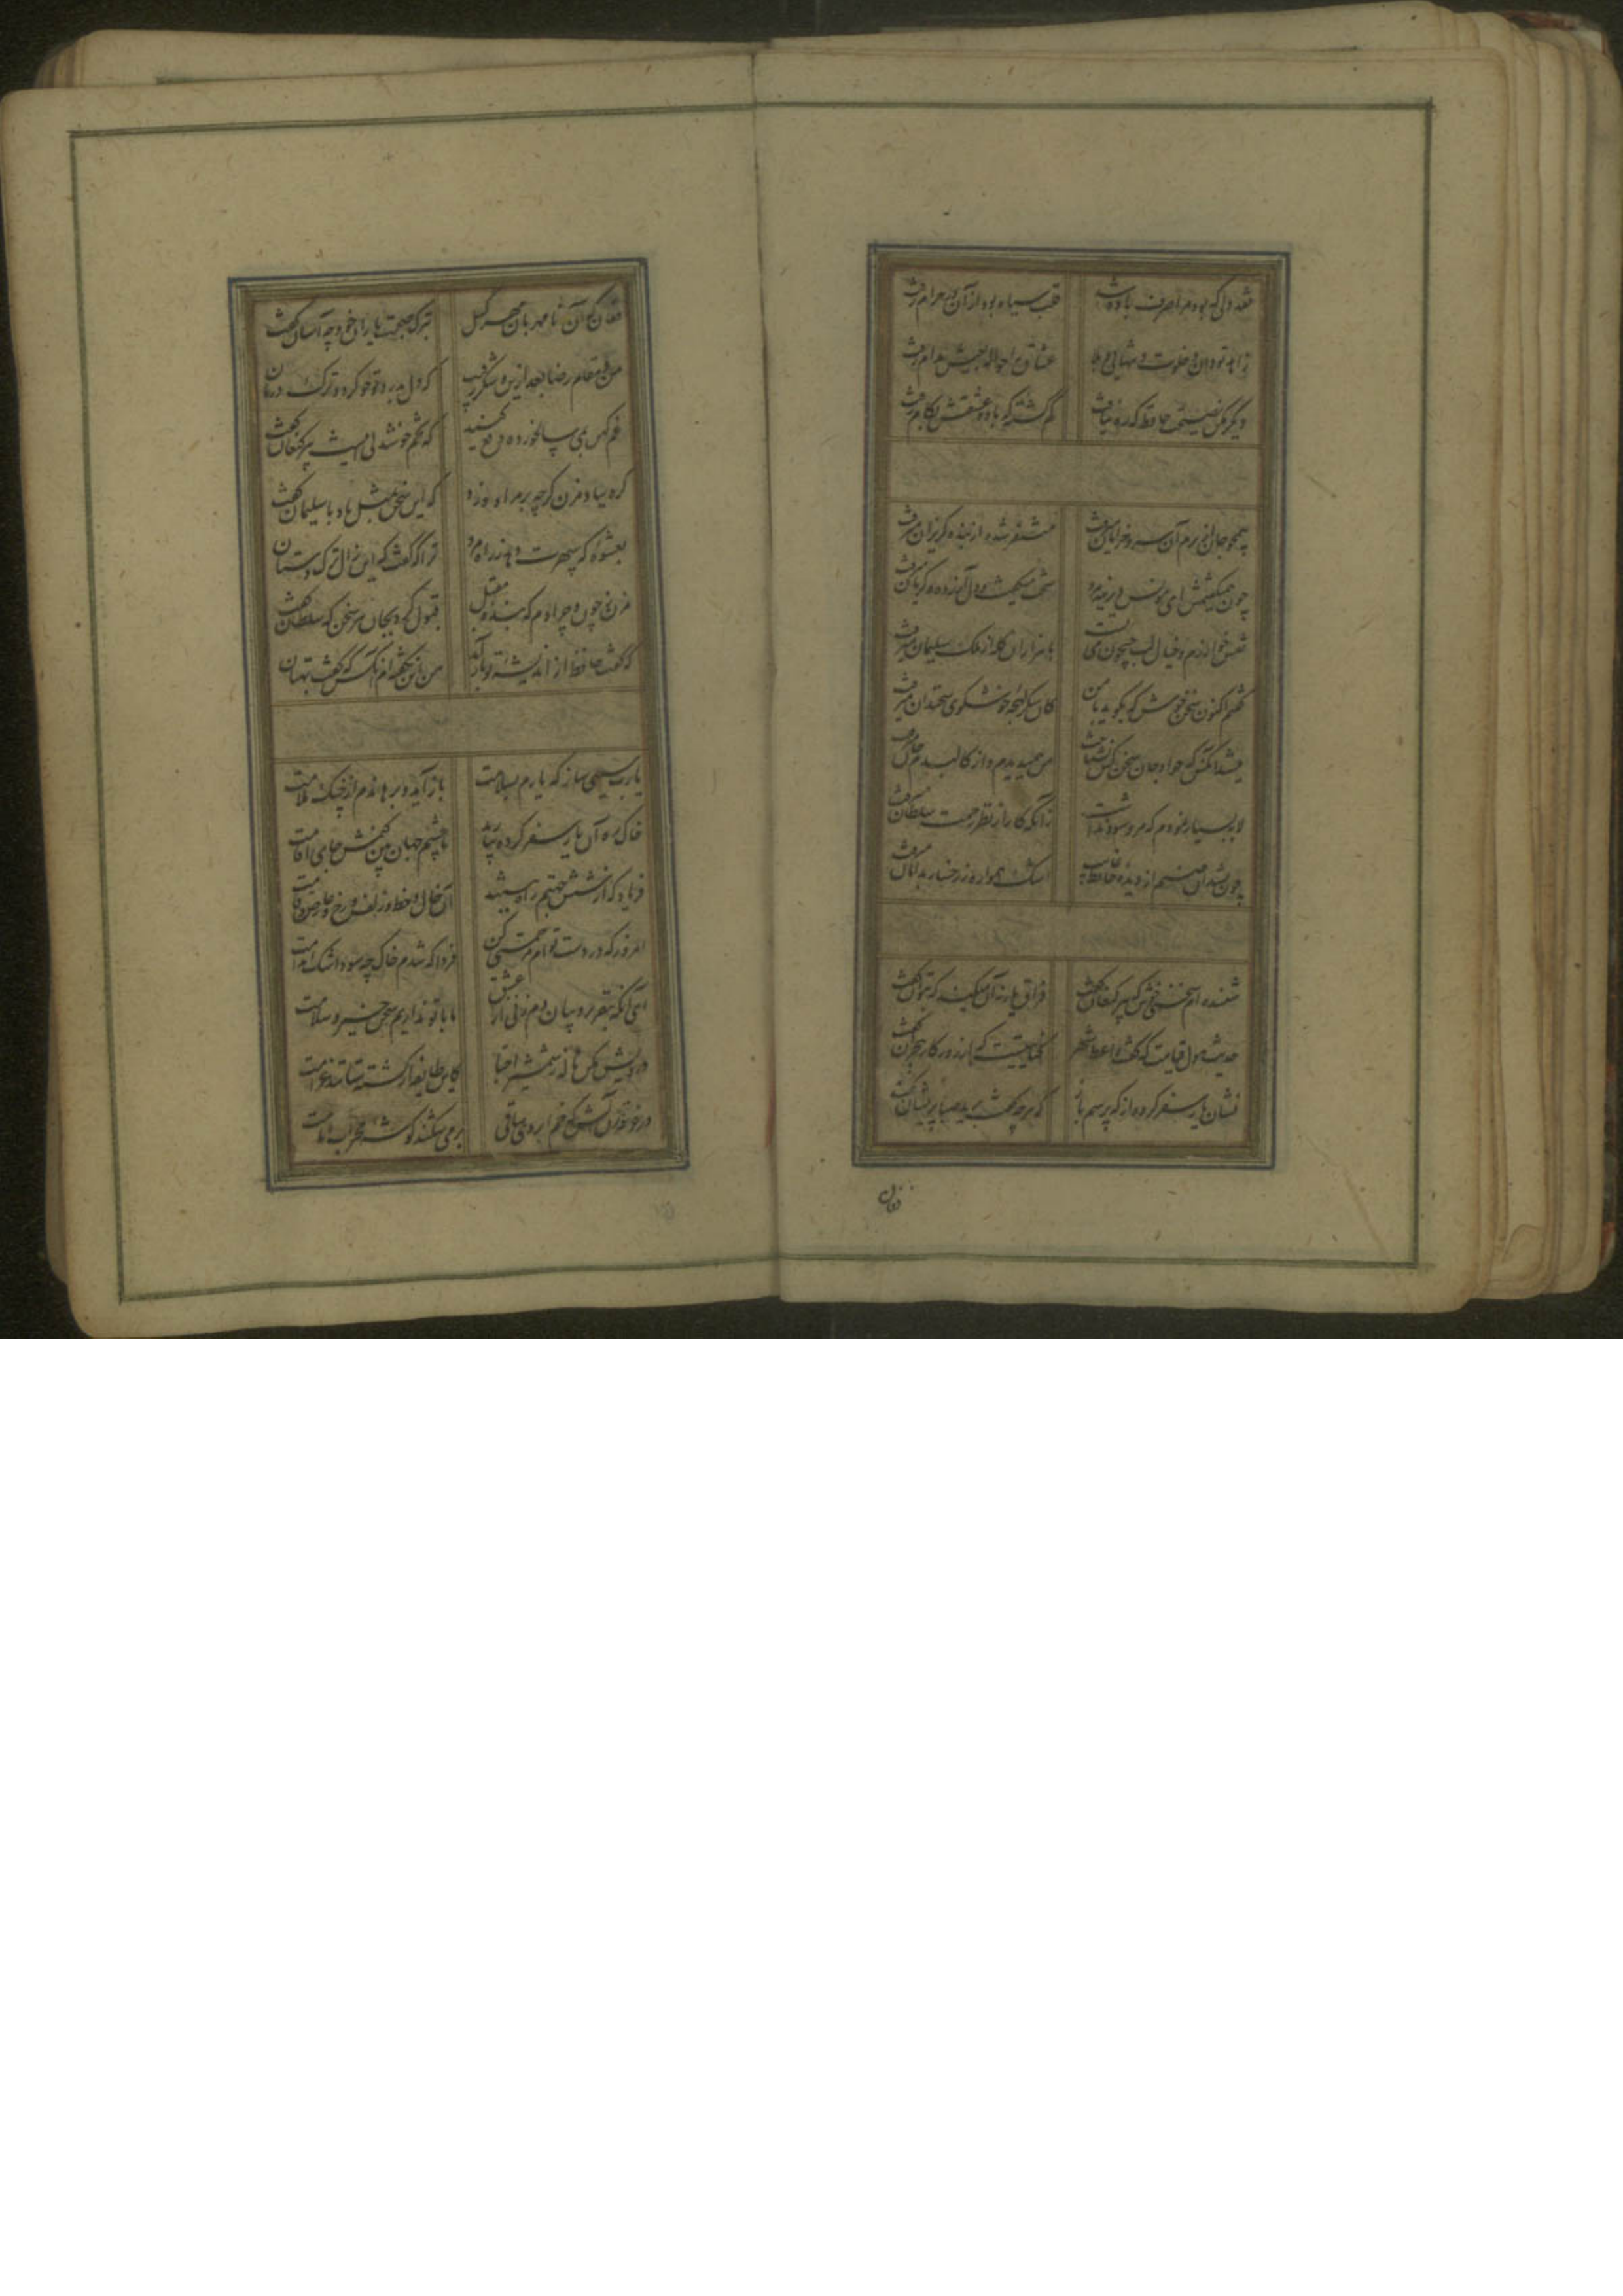 نقد دلی که بود مرا صرف باده شد
قلب سیاه بود از آن در حرام رفت
زاهد تو دان و خلوت و تنهایی و
عشاق را حواله بعیش مدام رفت
دیگر مکن نصیحت حافظ که ره نیافت
گم گشته که باده عشقش بکام رفت
همچو جان از برم آن سرو خرامان میرفت
شده از بنده گریزان میرفت
چون همیگفتمش ای مونس دیرینه مرو
سخت میگفت و دل آزرده و گریان میرفت
نقش خوارزم و خیال لب جیحون می بست
با هزاران گله از ملک سلیمان میرفت
گفتم اکنون سخن خوش که بگوید با من
کان شکر لهجه خوشگوی سخندان میرفت
میشد آنکس که جز او جان سخن کس نشناخت
من همیدیدم و از کالبدم جان میرفت
لابه بسیار نمودم که مرو سود نداشت
زانکه کار از نظر رحمت سلطان میرفت
چون بشد آن صنم از دیده حافظ غایب
اشک همواره ز رخسار بدامان میرفت
شنیده ام سخنی خوش که پیر کنعان گفت
فراق یار نه آن میکند که بتوان گفت
حدیث هول قیامت که گفت واعظ شهر
کنایتیست که از روزگار هجران گفت
نشان یار سفر کرده از که پرسم باز
که هر چه گفت برید صبا پریشان گفت
فغان
فغان که آن نا مهربان مهر گسل
بترک صحبت یاران خود چه آسان گفت
من و مقام رضا بعد ازین و شکر رقیب
که دل بدرد تو خو کرد و ترک درمان
غم کهن بمی سالخورده دفع کنید
که تخم خوشدلی اینست پیر کنعان گفت
گره بباد مزن گرچه بر مراد وزد
که این سخن بمثل باد با سلیمان گفت
بعشوه که سپهرت دهد ز راه مرو
ترا که گفت که این زال ترک دستان
مزن ز چون و چرا دم که بنده مقبل
قبول کرد بجان هر سخن که سلطان گفت
که گفت حافظ از اندیشه تو باز آمد
من این نگفته ام آنکس که گفت بهتان
یارب سببی ساز که یارم بسلامت
باز آید و برهاندم از چنگ ملامت
خاک ره آن یار سفر کرده بیارید
تا چشم جهان بین کنمش جای اقامت
فریاد که از شش جهتم راه ببستند
آن خال و خط و زلف و رخ و عارض و قامت
امروز که در دست توام مرحمتی کن
فردا که شدم خاک چه سود اشک ندامت
ای آنکه بتقریر و بیان دم زنی از عشق
ما با تو نداریم سخن خیر و سلامت
درویش مکن ناله ز شمشیر احبا
کاین طایفه از کشته ستانند غرامت
در خرقه زن آتش که خم ابروی ساقی
بر می شکند گوشه محراب امامت